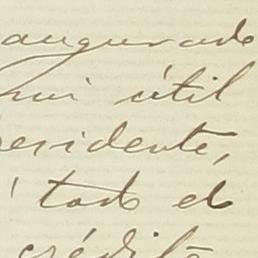 augurado
mi útil
residente,
á todo el
crédito